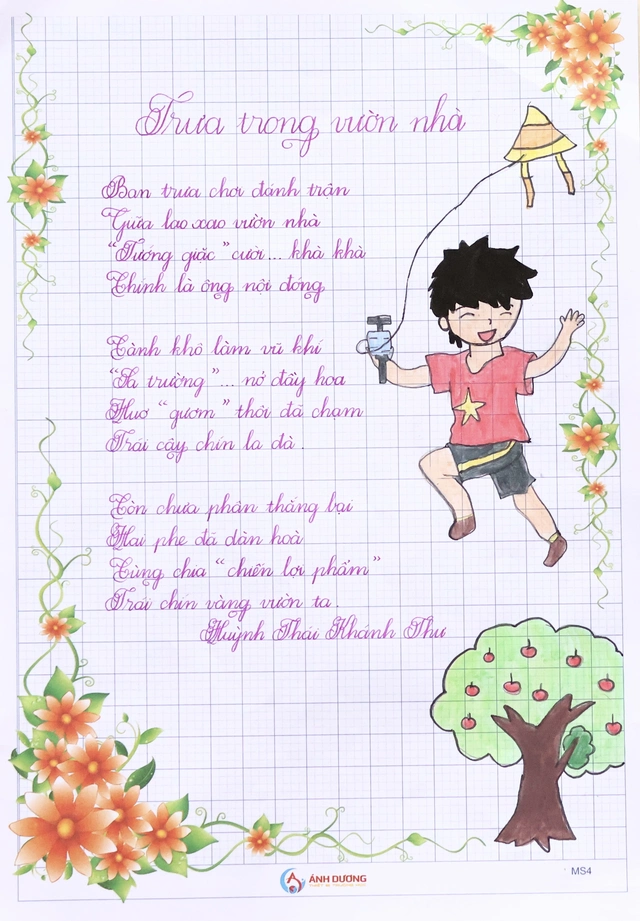 Trưa trong vườn nhà
Ban trưa chơi đánh trận
Giữa lao xao vườn nhà
“Tướng giặc” cười... khà khà
Chính là ông nội đóng
Cành khô làm vũ khí
“Sa trường”... nở đầy hoa
Huơ “gươm” thời đã chạm
Trái cây chín la đà.
Còn chưa phân thắng bại
Hai phe đã dàn hoà
Cùng chia “chiến lợi phẩm”
Trái chín vàng vườn ta.
Huỳnh Thái Khánh Thư
ÁNH DƯƠNG
MS4